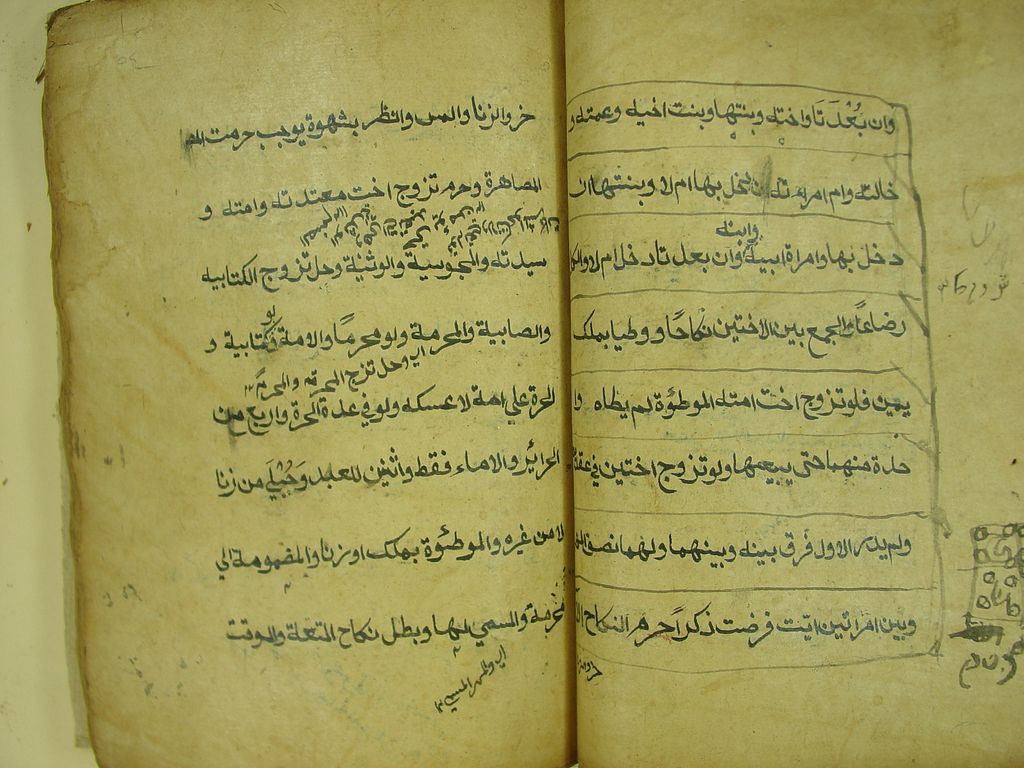 وان بُعْدَتَا واخته وبنتها وبنت اخيه وعمته و
خالته وام امرءته دخل بها ام لا وبنتها ان
وابنه
دخل بها وامراة ابيه وان بعدتا دخل ام لا والكل
رضاعًا والجمع بين الاختين نكاحًا ووطيا بملك
يمين فلو تزوج اخت امته الموطؤة لم يطاه وا
حدة منهما حتى يبيعها ولو تزوج اختين في عقد
ولم يدر الاول فرق بينه وبينهما ولهما نصف الم
وبين امراتين ايّت فرضت ذكراً حرم النكاح
خر والزنا والمس والنظر بشهوة يوجب حرمت
المصاهرة وحرم تزوج اخت معتدته وامته و
سيدته والمجوسية والوثنية وحل تزوج الكتابيه
لو
والصابية والمحرمة ولو محرمًا والامة كتابية و
اي وحل تزج المحرمة والمحرم
الحرة علي امة لا عكسه ولو في عدة الحرة واربع من
الحرائر والاماء فقط واثنين للعبد وَحُبْلَي من زنا
لا من غيره والموطئوة بملك او زنا والمضمومة الي
محرمة والمسمي لها وبطل نكاح المتعة والموقت